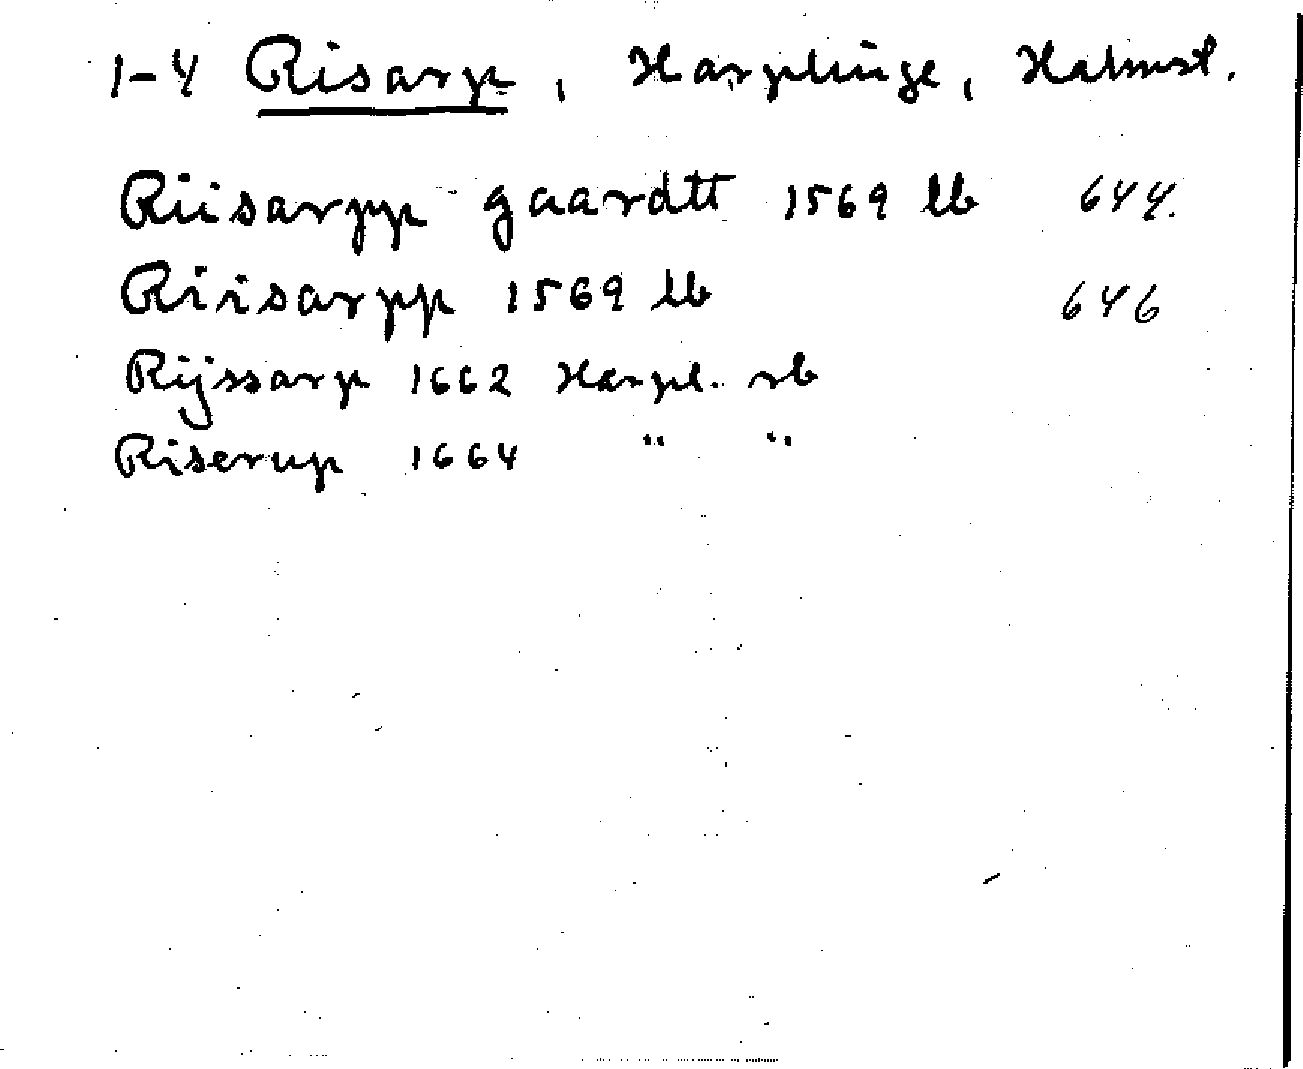 1-4 Risarp, Harplinge, Halmst.
Riisarpp gaardtt 1569 lb 644.
Riisarpp 1569 lb 646
Rijssarp 1662 Harpl. rb
Riserup 1664 " "